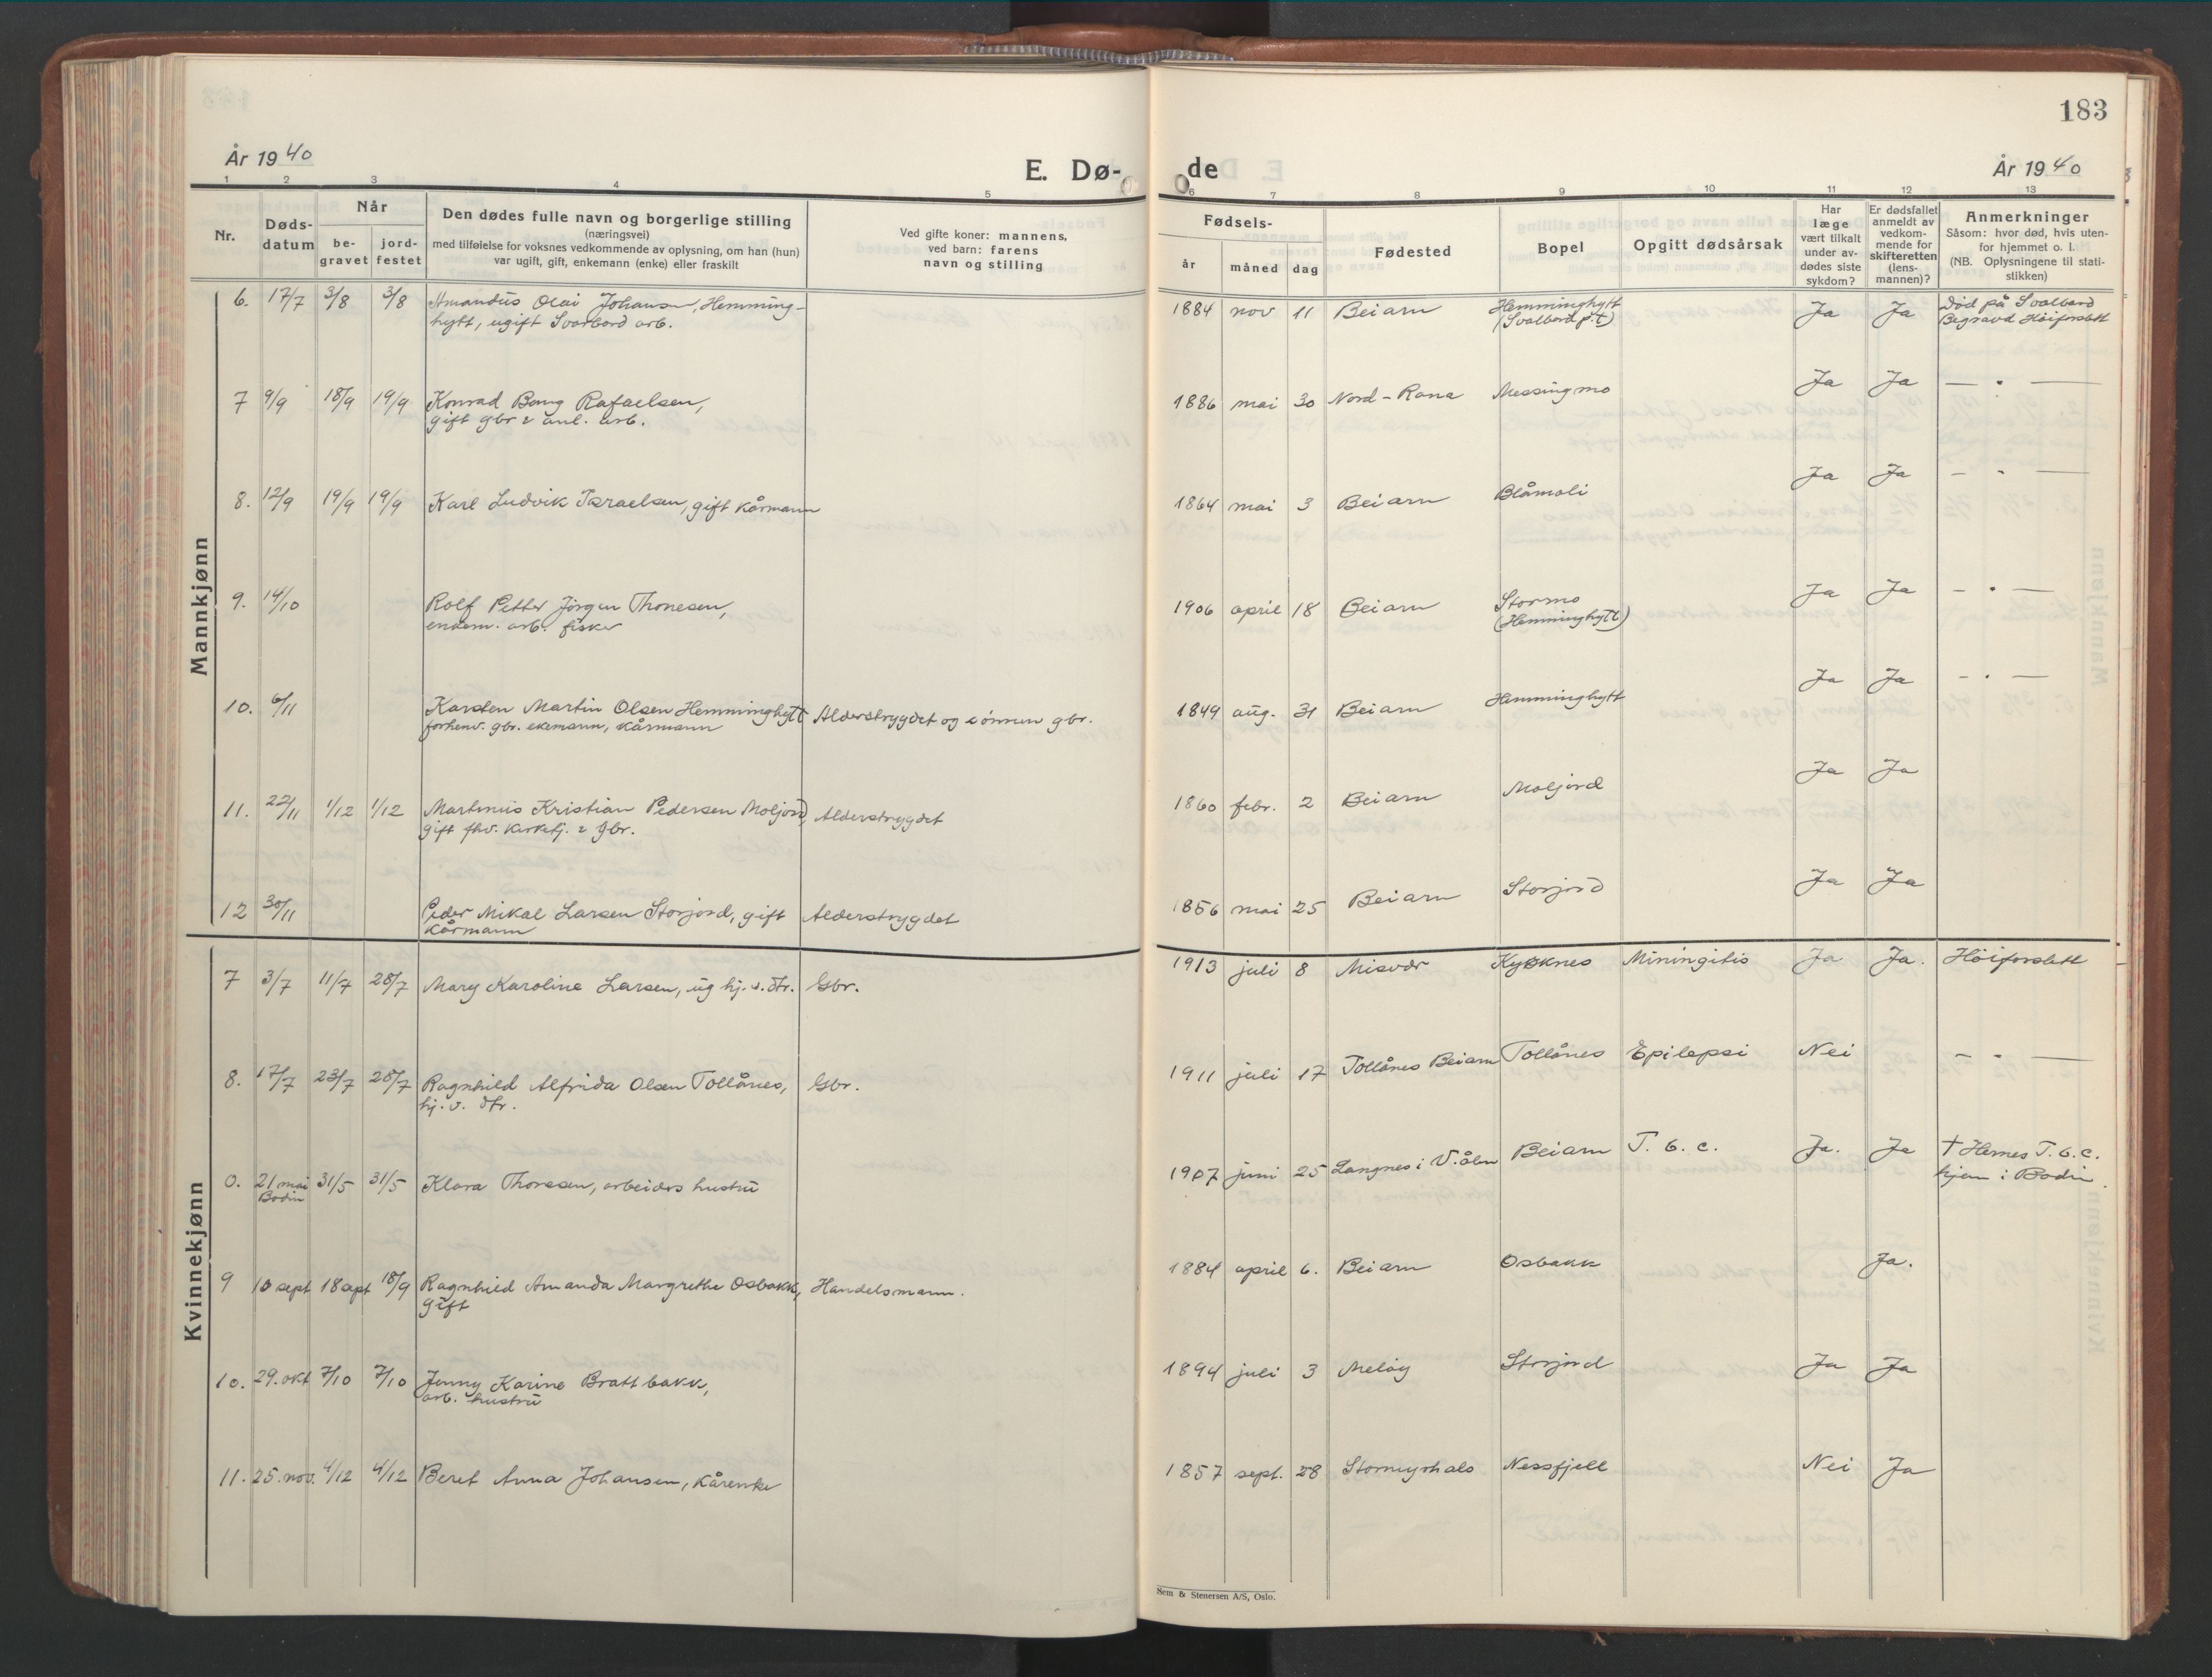 183
År 1940
E. Dø-
de
År 1940
1 2 3 4 5 6 7 8 9 10 11 12 13
Nr.
Døds-
datum
Når
be-
gravet
jord-
festet
Den dødes fulle navn og borgerlige stilling
(næringsvei)
med tilføielse for voksnes vedkommende av oplysning, om han (hun)
var ugift, gift, enkemann (enke) eller fraskilt
Ved gifte koner: mannens,
ved barn: farens
navn og stilling
Fødsels-
år måned dag
Fødested
Bopel
Opgitt dødsårsak
Har
læge
vært tilkalt
under av-
dødes siste
sykdom?
Er dødsfallet
anmeldt av
vedkom-
mende for
skifteretten
(lens-
mannen)?
Anmerkninger
Såsom: hvor død, hvis uten-
for hjemmet o. l.
(NB. Oplysningene til stati-
stikken)
Mannkjønn
6. 17/7 3/8 3/8 Amandus Olai Johansen, Hemming-
hytt, ugift Svarbard arb.
1884 nov 11 Beiarn Hemminghytt
(Svalbard p.t)
Ja Ja Død på Svalbard
Begravd Höiforslett
7 9/9 18/9 19/9 Konrad Bang Rafaelsen,
gift gbr & anl. arb.
1886 mai 30 Nord-Rana Messingmo Ja Ja — " —
8. 12/9 19/9 19/9 Karl Ludvik Israelsen, gift kårmann
1864 mai 3 Beiarn Blåmoli Ja Ja — " —
9. 14/10 Rolf Petter Jörgen Thonesen,
enkem. arb. fisker
1906 april 18 Beiarn Stormo
(Hemminghytt)
Ja Ja — " —
10. 6/11 Karsten Martin Olsen Hemminghytt Alderstrygdet og sönnen gbr.
forhenv. gbr. ekemann, kårmann
1849 aug. 31 Beiarn Hemminghytt Ja Ja — " —
11. 22/11 1/12 1/12 Martinus Kristian Pedersen Moljord, Alderstrygdet
gift fhv. kirketj. & gbr.
1860 febr. 2 Beiarn Moljord Ja Ja
12 30/11 Peder Mikal Larsen Storjord, gift Alderstrygdet
kårmann
1856 mai 25 Beiarn Storjord Ja Ja
Kvinnekjønn
7 3/7 11/7 28/7 Mary Karoline Larsen, ug hj. v. dtr. Gbr.
1913 juli 8 Misvær Kysknes Miningitis Ja Ja. Höiforslett
8. 17/7 23/7 28/7 Ragnhild Alfrida Olsen Tollånes, Gbr.
hj. v. dtr.
1911 juli 17 Tollånes Beiarn Tollånes Epilepsi Nei — " —
0. 21 mai 31/5 31/5 Klara Thoresen, arbeiders hustru
Bodin
1907 juni 25 Langnes i Beiarn T. b. c. Ja. Ja † Hernes T. b. c.
hjem i Bodin.
9 10 sept 18 sept 18/9 Ragnhild Amanda Margrethe Osbakk, Handelsmann.
gift
1884 april 6. Beiarn Osbakk Ja.
10. 29. okt 7/10 7/10 Jenny Karine Brattbakk,
arb. hustru
1894 juli 3 Melöy Storjord Ja Ja
11. 25. nov. 4/12 4/12 Beret Anna Johansen, kårenke
1857 sept. 28 Stormyrhals Nessfjell Nei Ja
Sem & Stenersen A/S, Oslo.